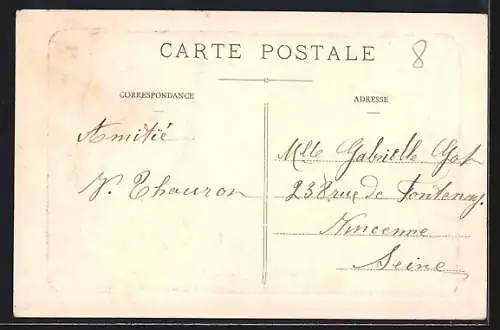 CARTE POSTALE
8
CORRESPONDANCE
ADRESSE
Amitié
Mlle Gabrielle
238 rue de Fontenay.
Vincenne
Seine